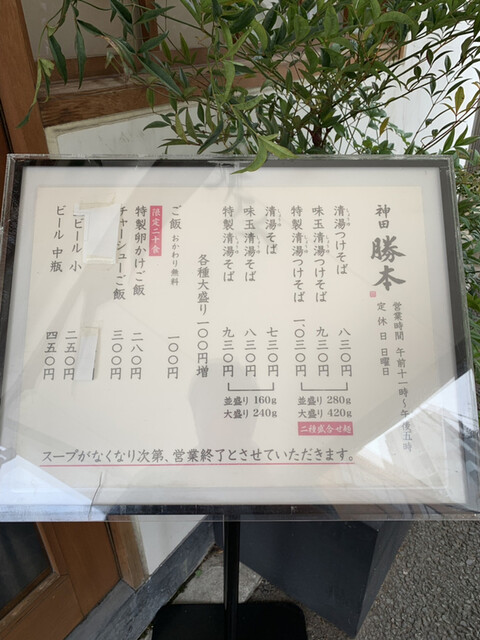 神田 勝本
営業時間 午前十一時〜午後五時
定休日 日曜日
清湯つけそば 八三〇円
味玉清湯つけそば 九三〇円
特製清湯つけそば 一、〇三〇円
並盛り 280g
大盛り 420g
二種盛合せ麺
清湯そば 七三〇円
味玉清湯そば 八三〇円
特製清湯そば 九三〇円
並盛り 160g
大盛り 240g
各種大盛り 一〇〇円増
ご飯 おかわり無料 一〇〇円
限定二十食
特製卵かけご飯 二八〇円
チャーシューご飯 三〇〇円
ビール 小 二五〇円
ビール 中瓶 四五〇円
スープがなくなり次第、営業終了とさせていただきます。